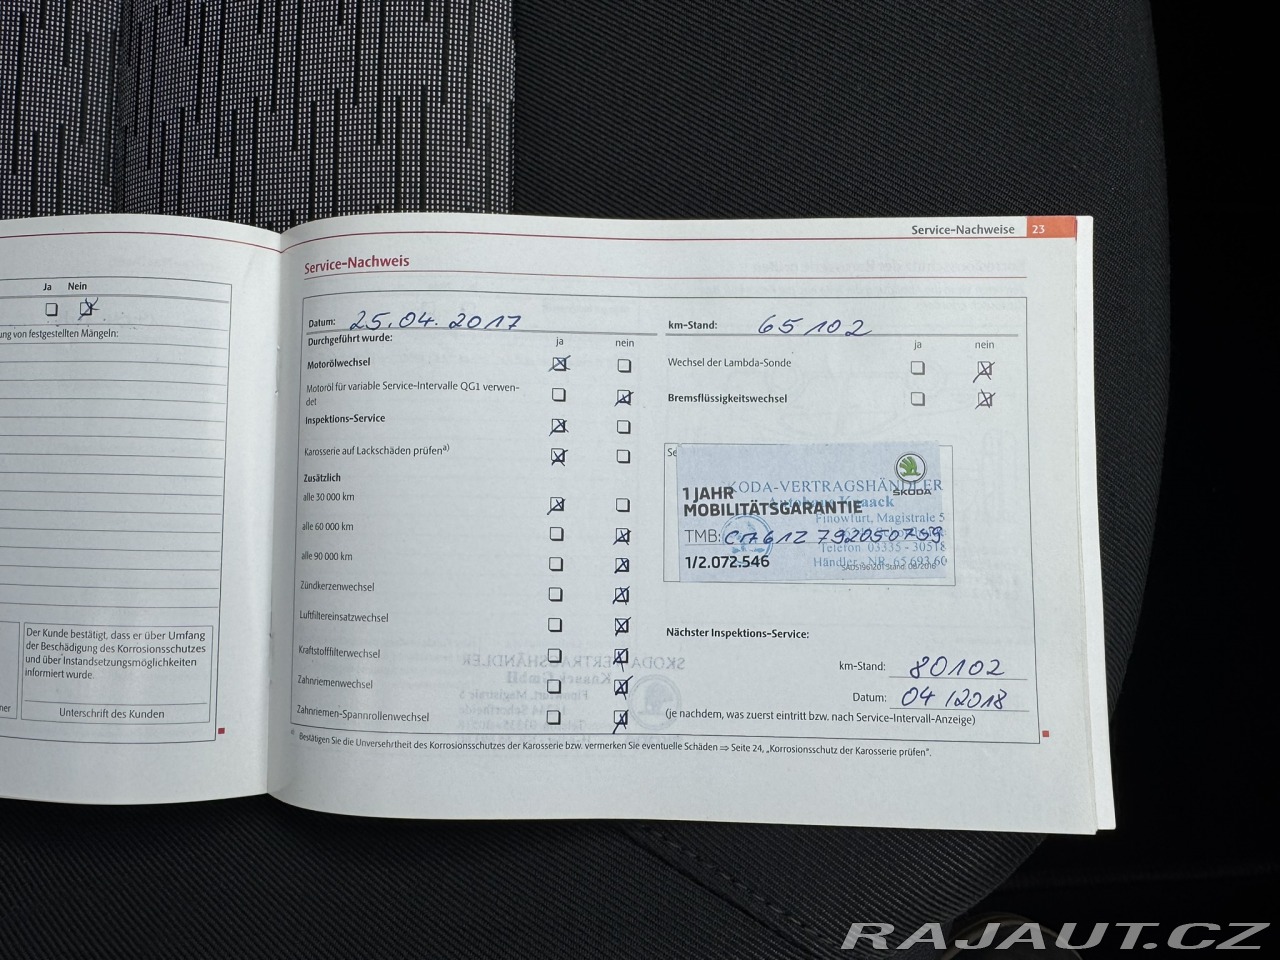 Service-Nachweise 23
Ja Nein
ung von festgestellten Mängeln:
Der Kunde bestätigt, dass er über Umfang
der Beschädigung des Korrosionsschutzes
und über Instandsetzungsmöglichkeiten
informiert wurde.
Unterschrift des Kunden
Service-Nachweis
Datum: 25.04.2017
Durchgeführt wurde: ja nein
Motorölwechsel
Motoröl für variable Service-Intervalle QG1 verwen-
det
Inspektions-Service
Karosserie auf Lackschäden prüfen a)
Zusätzlich
alle 30 000 km
alle 60 000 km
alle 90 000 km
Zündkerzenwechsel
Luftfiltereinsatzwechsel
Kraftstofffilterwechsel
Zahnriemenwechsel
Zahnriemen-Spannrollenwechsel
km-Stand: 65102
ja nein
Wechsel der Lambda-Sonde
Bremsflüssigkeitswechsel
ŠKODA
KODA-VERTRAGSHÄNDLER
1 JAHR
MOBILITÄTSGARANTIE
Finowfurt, Magistrale 5
TMB:
Telefon 03335 - 30518
1/2.072.546
Händler - NR. 65 693 60
Nächster Inspektions-Service:
km-Stand: 80102
Datum: 04/2018
(je nachdem, was zuerst eintritt bzw. nach Service-Intervall-Anzeige)
a) Bestätigen Sie die Unversehrtheit des Korrosionsschutzes der Karosserie bzw. vermerken Sie eventuelle Schäden ⇒ Seite 24, „Korrosionsschutz der Karosserie prüfen“.
RAJAUT.CZ